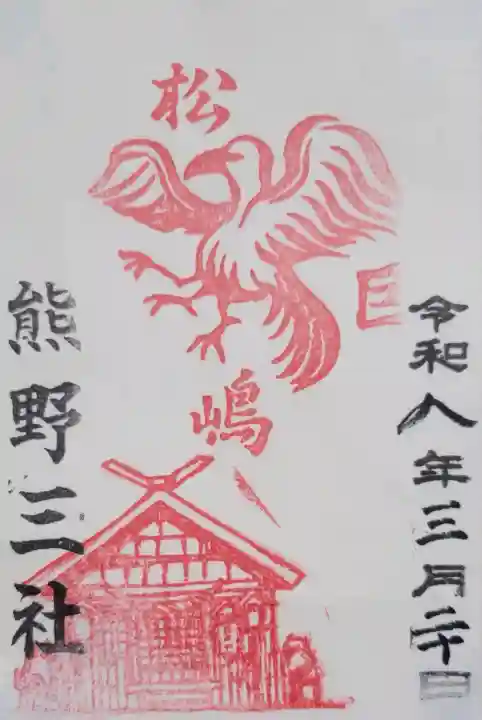 令和八年三月二十日
松
嶋
熊野三社